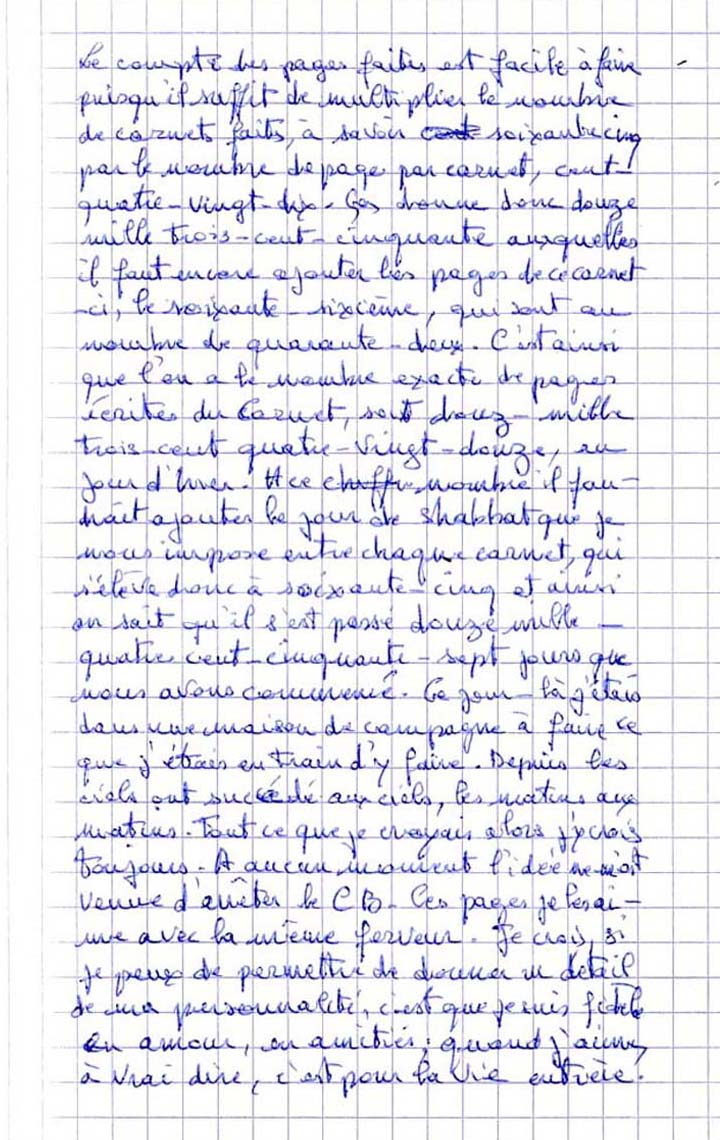 Le compte des pages faites est facile à faire
puisqu'il suffit de multiplier le nombre
de carnets faits, à savoir soixante cinq
par le nombre de page par carnet, cent-
quatre-vingt-dix. Ça donne donc douze
mille trois-cent-cinquante auxquelles
il faut encore ajouter les pages de ce carnet
-ci, le soixante-sixième, qui sont au
nombre de quarante-deux. C'est ainsi
que l'on a le nombre exacte de pages
écrites du Carnet, soit douz-mille
trois-cent quatre-vingt-douze, au
jour d'hier. A ce chiffre nombre il fau-
drait ajouter le jour de shabbat que je
nous impose entre chaque carnet, qui
s'élève donc à soixante-cinq et ainsi
on sait qu'il s'est passé douze mille-
quatre cent-cinquante-sept jours que
nous avons commencé. Ce jour-là j'étais
dans une maison de campagne à faire ce
que j'étais en train d'y faire. Depuis les
ciels ont succédé aux ciels, les matins aux
matins. Tout ce que je croyais alors j'y crois
toujours. A aucun moment l'idée ne m'est
venue d'arrêter le CB. Ces pages je les ai-
me avec la même ferveur. Je crois, si
je peux de permettre de donner un détail
de ma personnalité, c'est que je suis fidèle
en amour, en amitiés; quand j'aime,
à vrai dire, c'est pour la vie entière.